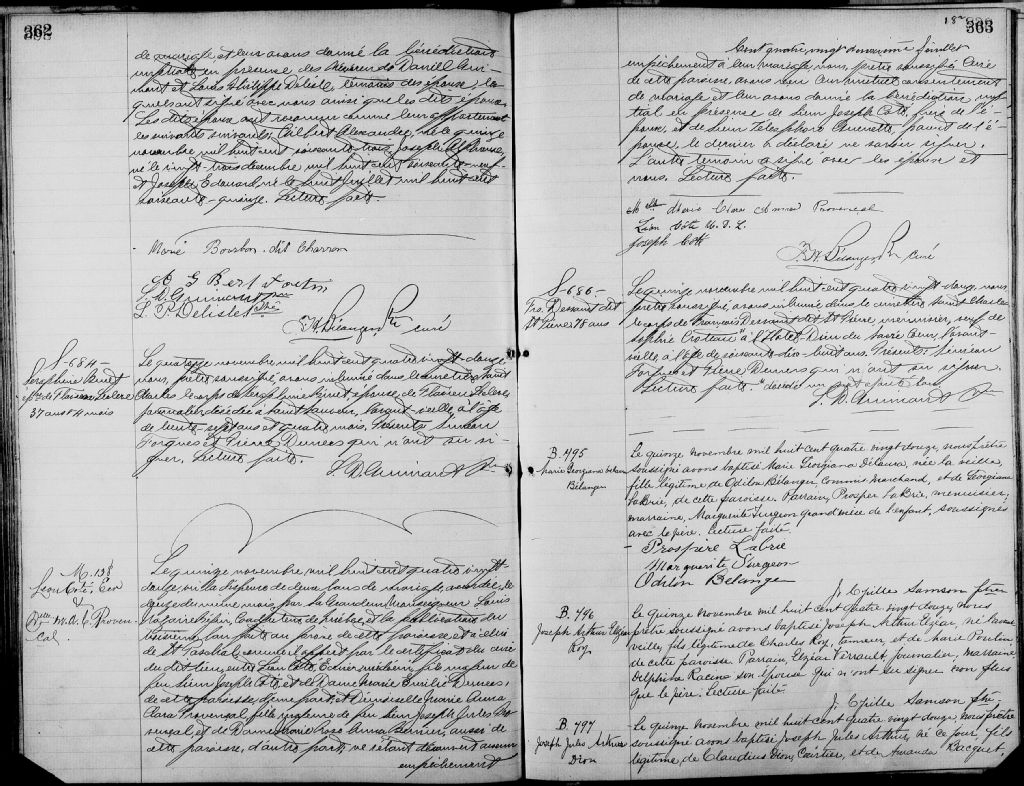 362
de mariage, et leur avons donné la bénédiction
nuptiale en présence des Révérends
et Louis Philippe Delisle, témoins des époux, les
quels ont signé avec nous ainsi que les dits époux.
Les dits époux ont reconnu comme leur appartenant
les enfants suivants, Alexandre, né le quinze
novembre mil huit cent soixante-trois, Joseph
né le vingt-trois décembre mil huit cent soixante-neuf
et Joseph Edouard, né le huit Juillet mil huit cent
soixante-quinze. Lecture faite.
Bourbon dit Charron
L. P. Delisle ptre
F. H. Bélanger Ptre curé
S. 684
Séraphine
épse de Flavien Leclerc
37 ans & 4 mois
Le quatorze novembre mil huit cent quatre vingt-douze
nous, prêtre soussigné, avons inhumé dans le cimetière Saint
Charles le corps de Séraphine épouse de Flavien Leclerc,
journalier décédée à Saint Sauveur, l'avant-veille, à l'âge
de trente-sept ans et quatre mois. Présents Siméon
Forgues et Pierre Dumers qui n'ont su si-
gner. Lecture faite.
M. 138
Léon Côté, Ecr
&
Dlle M. A. C. Proven-
cal.
Le quinze novembre mil huit cent quatre vingt
douze, vu la dispense de deux bans de mariage, accordée le
douze du même mois par Sa Grandeur Monseigneur Louis
Nazaire Bégin, Coadjuteur de et la publication du
troisième ban faite au prône de cette paroisse et à celui
de St Paschal, comme il appert par le certificat du curé
du dit lieu, entre Léon Côté, Ecuier médecin fils majeur de
feu Sieur Joseph Côté et de Dame Marie Emilie Dumers,
de cette paroisse, d'une part, et Demoiselle Marie Anna
Clara Provençal, fille mineure de feu Sieur Joseph Jules Pro-
vençal et de Dame Marie Rose Anna Bernier, aussi de
cette paroisse, d'autre part, ne s'étant découvert aucun
empêchement
18e
363
Cent quatre vingt deuxième feuillet
empêchement à leur mariage, nous, prêtre soussigné Curé
de cette paroisse avons reçu leur mutuel consentement
de mariage et leur avons donné la bénédiction nup-
tiale en présence de Sieur Joseph Côté, frère de l'é-
poux, et de Sieur Télesphore parent de l'é-
pouse, le dernier a déclaré ne savoir signer.
L'autre témoin a signé avec les époux et
nous. Lecture faite.
Marie Clara Anna Provencal
Léon Côté M. D. L.
Joseph Côté
F. H. Bélanger Ptre curé
S. 686
Frs. Dessaint dit
St Pierre 78 ans
Le quinze novembre mil huit cent quatre vingt douze, nous
prêtre soussigné, avons inhumé dans le cimetière Saint Charles
le corps de François Dessaint dit St Pierre, menuisier, veuf de
Sophie Croteau à l'Hôtel Dieu du Sacré Coeur, l'avant-
veille, à l'âge de soixante-dix-huit ans. Présents Siméon
Forgues et Pierre Dumers qui n'ont su signer.
Lecture faite.
B. 795
Marie Georgiana
Bélanger
Le quinze novembre mil huit cent quatre vingt douze, nous prêtre
soussigné avons baptisé Marie Georgiana née la veille,
fille légitime de Odilon Bélanger Commis Marchand, et de Georgiana
Labrie, de cette paroisse. Parrain, Prosper Labrie, menuisier;
marraine, Marguerite Turgeon grand'mère de l'enfant, soussignés
avec le père. Lecture faite.
Prospere Labrie
Marguerite Turgeon
Odilon Bélanger
J. Opille Samson ptre
B. 796
Joseph Arthur Elzéar
Roy
Le quinze novembre mil huit cent quatre vingt douze, nous
prêtre soussigné avons baptisé Joseph Arthur Elzéar, né l'avant
veille, fils légitime de Charles Roy, tanneur, et de Marie Poulin
de cette paroisse. Parrain, Elzéar journalier, marraine
Delphine Racine son épouse qui n'ont su signer non plus
que le père. Lecture faite.
J. Opille Samson ptre
B. 797
Joseph Jules Arthur
Dion
Le quinze novembre mil huit cent quatre vingt douze, nous prêtre
soussigné avons baptisé Joseph Jules Arthur, né ce jour, fils
légitime de Claudius Dion, Cantier, et de Amanda Racquet,